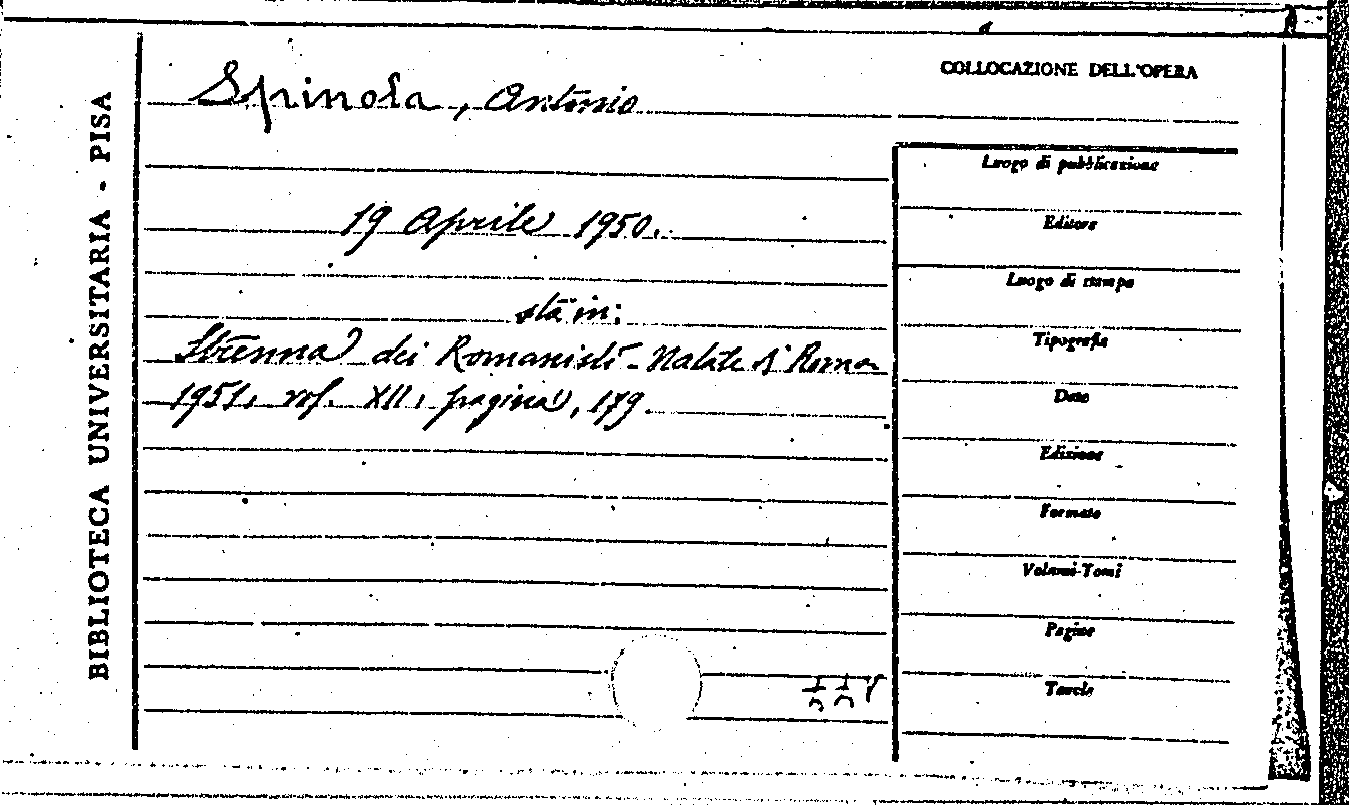 COLLOCAZIONE DELL'OPERA
Spinola, Antonio
BIBLIOTECA UNIVERSITARIA - PISA
19 Aprile 1950.
sta in:
Strenna dei Romanisti - Natale di Roma
1951, vol. XII, pagina, 179.
Luogo di pubblicazione
Editore
Luogo di stampa
Tipografia
Data
Edizione
Formato
Volumi-Tomi
Pagine
Tavole